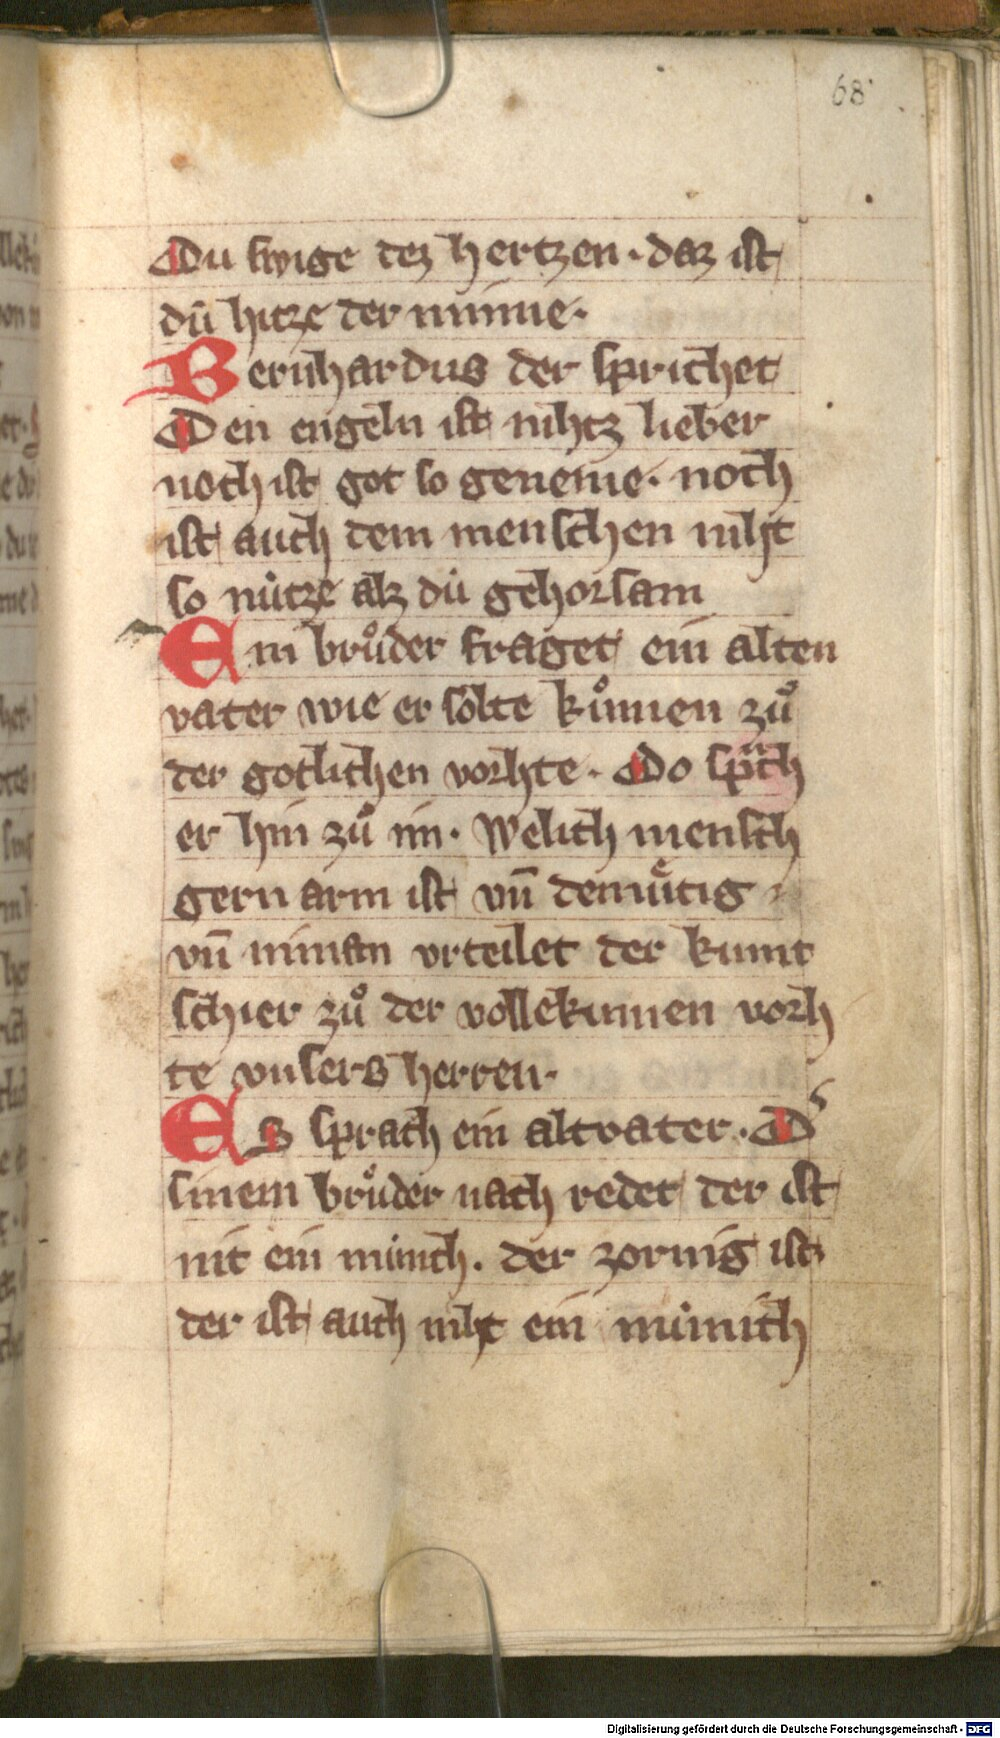 68
Du swige dez hertzen · daz ist
dü hitze der minne ·
Bernhardus der sprichet
Den engeln ist nihtz lieber
noch ist got so geneme · noch
ist auch dem menschen niht
so nütze alz dü gehorsam
Ein brůder fraget ein alten
vater wie er sölte kůmen zů
der gotlichen vorhte · Do spᵃch
er hin zů im · Welich mensch
gern arm ist vn̄ demütig
vn̄ niman vrteilet der kumt
schier zů der vollekumen vorh
te vnsers herren ·
Es sprach ein altvater · D
sinem brůder nach redet der ist
nit ein münch . der zornig ist
der ist auch niht ein münich
Digitalisierung gefördert durch die Deutsche Forschungsgemeinschaft - DFG